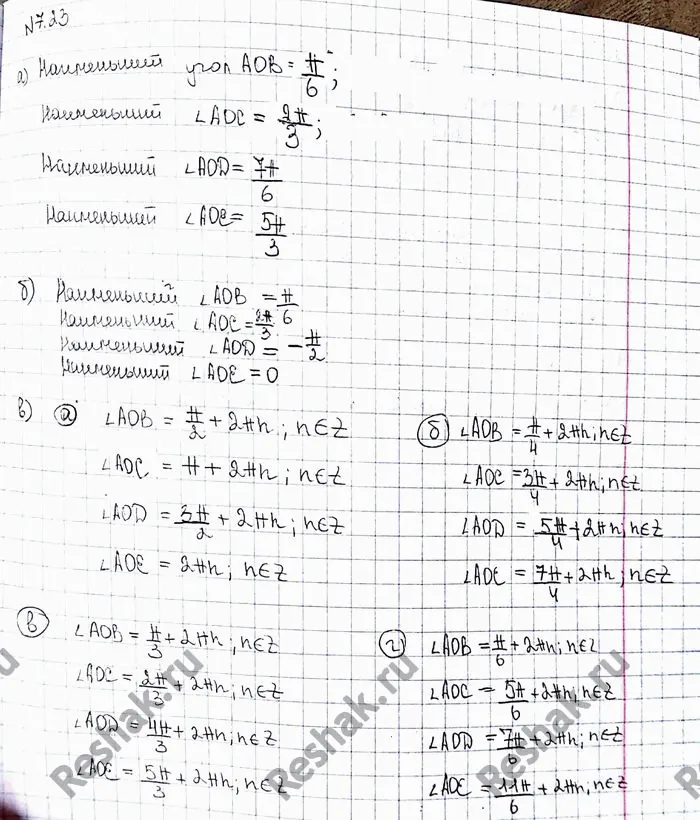 N7.23
а) Наименьший угол AOB = π/6;
Наименьший ∠AOC = 2π/3;
Наименьший ∠AOD = 7π/6
Наименьший ∠AOE = 5π/3
б) Наименьший ∠AOB = π/6
Наименьший ∠AOC = 2π/3
Наименьший ∠AOD = -π/2
Наименьший ∠AOE = 0
в) а) ∠AOB = π/2 + 2πn; n∈Z
∠AOC = π + 2πn; n∈Z
∠AOD = 3π/2 + 2πn; n∈Z
∠AOE = 2πn; n∈Z
б) ∠AOB = π/4 + 2πn; n∈Z
∠AOC = 3π/4 + 2πn; n∈Z
∠AOD = 5π/4 + 2πn; n∈Z
∠AOE = 7π/4 + 2πn; n∈Z
в) ∠AOB = π/3 + 2πn; n∈Z
∠AOC = 2π/3 + 2πn; n∈Z
∠AOD = 4π/3 + 2πn; n∈Z
∠AOE = 5π/3 + 2πn; n∈Z
г) ∠AOB = π/6 + 2πn; n∈Z
∠AOC = 5π/6 + 2πn; n∈Z
∠AOD = 7π/6 + 2πn; n∈Z
∠AOE = 11π/6 + 2πn; n∈Z
Reshak.ru
Reshak.ru
Reshak.ru